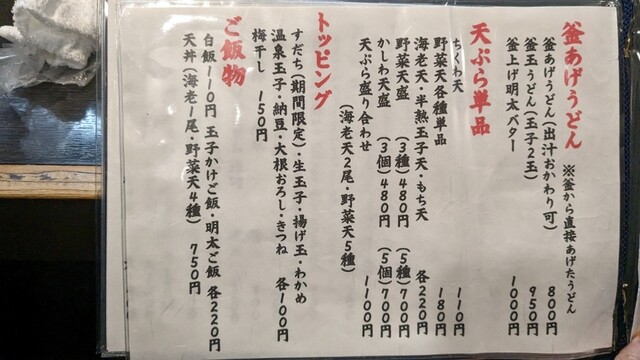 釜あげうどん ※釜から直接あげたうどん
釜あげうどん(出汁おかわり可) 800円
釜玉うどん(玉子2玉) 950円
釜上げ明太バター 1000円
天ぷら単品
ちくわ天 110円
野菜天各種単品 180円
海老天・半熟玉子天・もち天 各220円
野菜天盛 (3種)480円 (5種)700円
かしわ天盛 (3個)480円 (5個)700円
天ぷら盛り合わせ 1100円
(海老天2尾・野菜天5種)
トッピング
すだち(期間限定)・生玉子・揚げ玉・わかめ
温泉玉子・納豆・大根おろし・きつね 各100円
梅干し 150円
ご飯物
白飯110円 玉子かけご飯・明太ご飯 各220円
天丼(海老1尾・野菜天4種) 750円